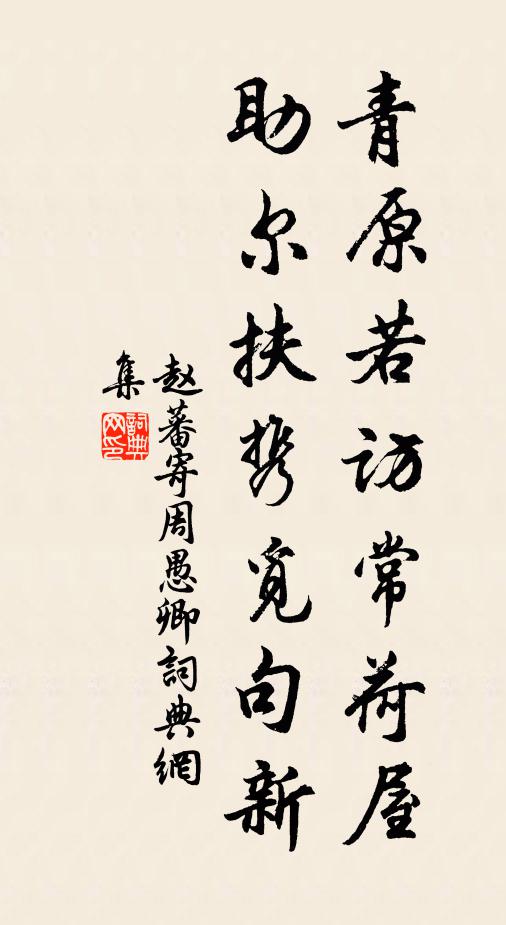 青原若访常荷屋
助尔扶携觅句新
赵蕃寄周愚卿詞典網
集
詞典网印